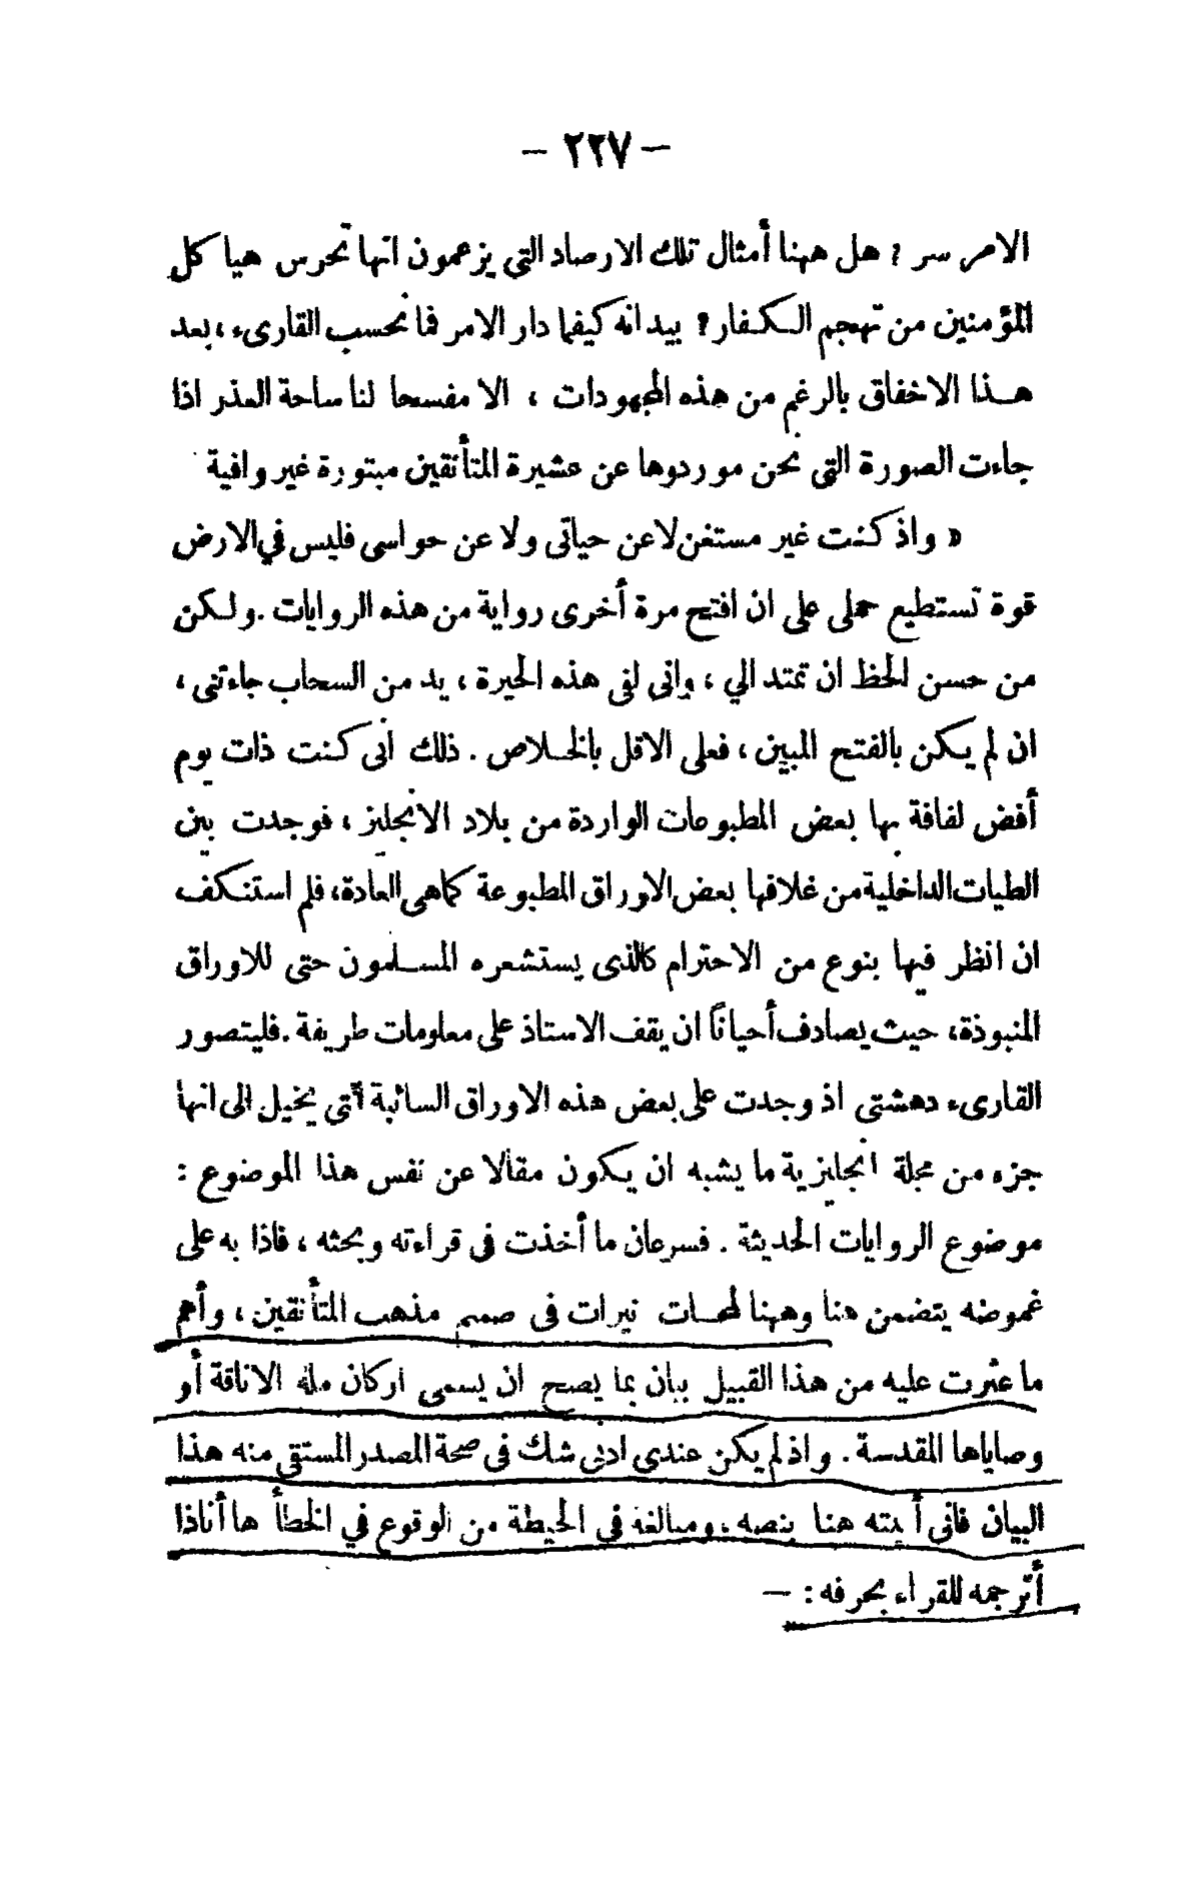 — ٢٢٧ —
الامر سر ؟ هل ههنا أمثال تلك الارصاد التي يزعمون انها تحرس هياكل
المؤمنين من تهجم الكفار؟ بيد انه كيفما دار الامر فما نحسب القارىء ، بعد
هذا الاخفاق بالرغم من هذه المجهودات ، الا مفسحا لنا ساحة العذر اذا
جاءت الصورة التي نحن موردوها عن عشيرة المتأنقين مبتورة غير وافية
« واذ كنت غير مستغن لا عن حياتى ولا عن حواسى فليس في الارض
قوة تستطيع حملى على ان افتح مرة أخرى رواية من هذه الروايات . ولكن
من حسن الحظ ان تمتد الي ، وانى لفى هذه الحيرة ، يد من السحاب جاءتنى ،
ان لم يكن بالفتح المبين ، فعلى الاقل بالخلاص . ذلك أنى كنت ذات يوم
أفض لفافة بها بعض المطبوعات الواردة من بلاد الانجليز ، فوجدت بين
الطيات الداخلية من غلافها بعض الاوراق المطبوعة كما هى العادة، فلم استنكف
ان انظر فيها بنوع من الاحترام كالذى يستشعره المسلمون حتى للاوراق
المنبوذة، حيث يصادف أحياناً ان يقف الاستاذ على معلومات طريفة . فليتصور
القارىء دهشتى اذ وجدت على بعض هذه الاوراق السائبة التى يخيل الى انها
جزء من مجلة انجليزية ما يشبه ان يكون مقالا عن نفس هذا الموضوع :
موضوع الروايات الحديثة . فسرعان ما أخذت فى قراءته وبحثه ، فاذا به على
غموضه يتضمن هنا وههنا لمحات نيرات فى صميم مذهب المتأنقين ، وأهم
ما عثرت عليه من هذا القبيل بيان بما يصح ان يسمى اركان ملة الاناقة أو
وصاياها المقدسة . واذ لم يكن عندى ادنى شك فى صحة المصدر المستقى منه هذا
البيان فانى أثبته هنا بنصه ، ومبالغة فى الحيطة من الوقوع في الخطأ ها أناذا
أترجمه للقراء بحرفه : —